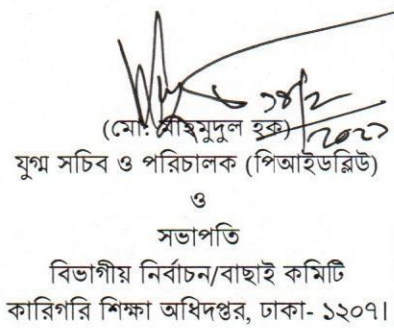 ১৪/২
২০২১
(মো: মাহমুদুল হক)
যুগ্ম সচিব ও পরিচালক (পিআইডব্লিউ)
ও
সভাপতি
বিভাগীয় নির্বাচন/বাছাই কমিটি
কারিগরি শিক্ষা অধিদপ্তর, ঢাকা- ১২০৭।